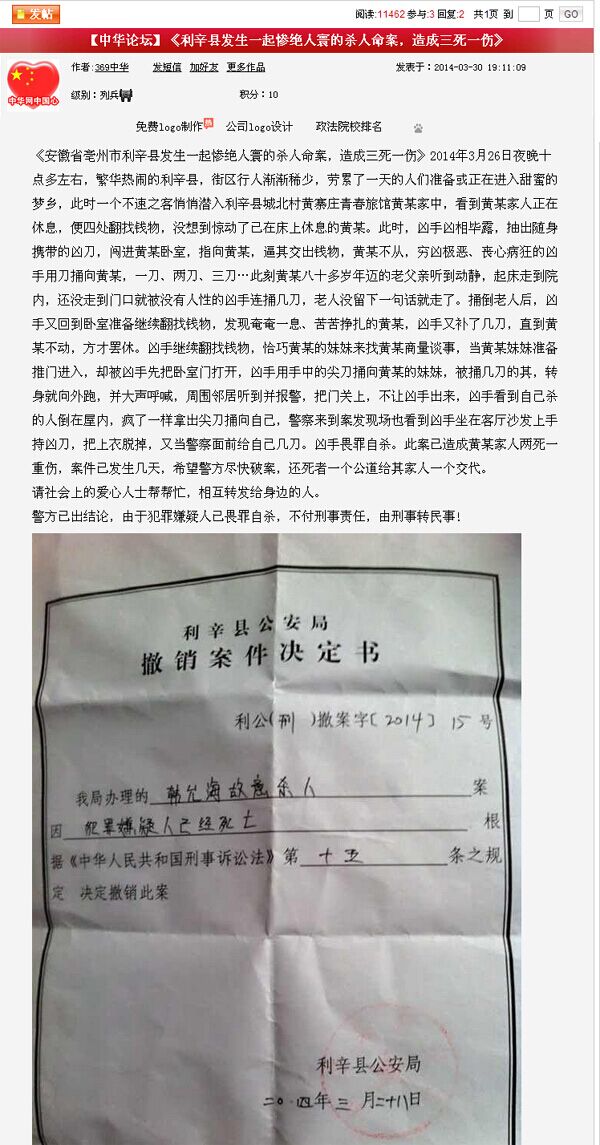 发帖
阅读:11462 参与:3 回复:2 共1页 到 页 GO
【中华论坛】《利辛县发生一起惨绝人寰的杀人命案，造成三死一伤》
作者:369中华 发短信 加好友 更多作品 发表于：2014-03-30 19:11:09
中华网中国心
级别：列兵 积分：10
免费logo制作 公司logo设计 政法院校排名
《安徽省亳州市利辛县发生一起惨绝人寰的杀人命案，造成三死一伤》2014年3月26日夜晚十
点多左右，繁华热闹的利辛县，街区行人渐渐稀少，劳累了一天的人们准备或正在进入甜蜜的
梦乡，此时一个不速之客悄悄潜入利辛县城北村黄寨庄青春旅馆黄某家中，看到黄某家人正在
休息，便四处翻找钱物，没想到惊动了已在床上休息的黄某。此时，凶手凶相毕露，抽出随身
携带的凶刀，闯进黄某卧室，指向黄某，逼其交出钱物，黄某不从，穷凶极恶、丧心病狂的凶
手用刀捅向黄某，一刀、两刀、三刀…此刻黄某八十多岁年迈的老父亲听到动静，起床走到院
内，还没走到门口就被没有人性的凶手连捅几刀，老人没留下一句话就走了。捅倒老人后，凶
手又回到卧室准备继续翻找钱物，发现奄奄一息、苦苦挣扎的黄某，凶手又补了几刀，直到黄
某不动，方才罢休。凶手继续翻找钱物，恰巧黄某的妹妹来找黄某商量谈事，当黄某妹妹准备
推门进入，却被凶手先把卧室门打开，凶手用手中的尖刀捅向黄某的妹妹，被捅几刀的其，转
身就向外跑，并大声呼喊，周围邻居听到并报警，把门关上，不让凶手出来，凶手看到自己杀
的人倒在屋内，疯了一样拿出尖刀捅向自己，警察来到案发现场也看到凶手坐在客厅沙发上手
持凶刀，把上衣脱掉，又当警察面前给自己几刀。凶手畏罪自杀。此案已造成黄某家人两死一
重伤，案件已发生几天，希望警方尽快破案，还死者一个公道给其家人一个交代。
请社会上的爱心人士帮帮忙，相互转发给身边的人。
警方已出结论，由于犯罪嫌疑人已畏罪自杀，不付刑事责任，由刑事转民事!
利辛县公安局
撤销案件决定书
利公(刑 )撤案字〔2014〕15号
我局办理的 韩允海故意杀人 案
因 犯罪嫌疑人已经死亡 根
据《中华人民共和国刑事诉讼法》第 十五 条之规
定 决定撤销此案
利辛县公安局
二〇一四年三月二十八日